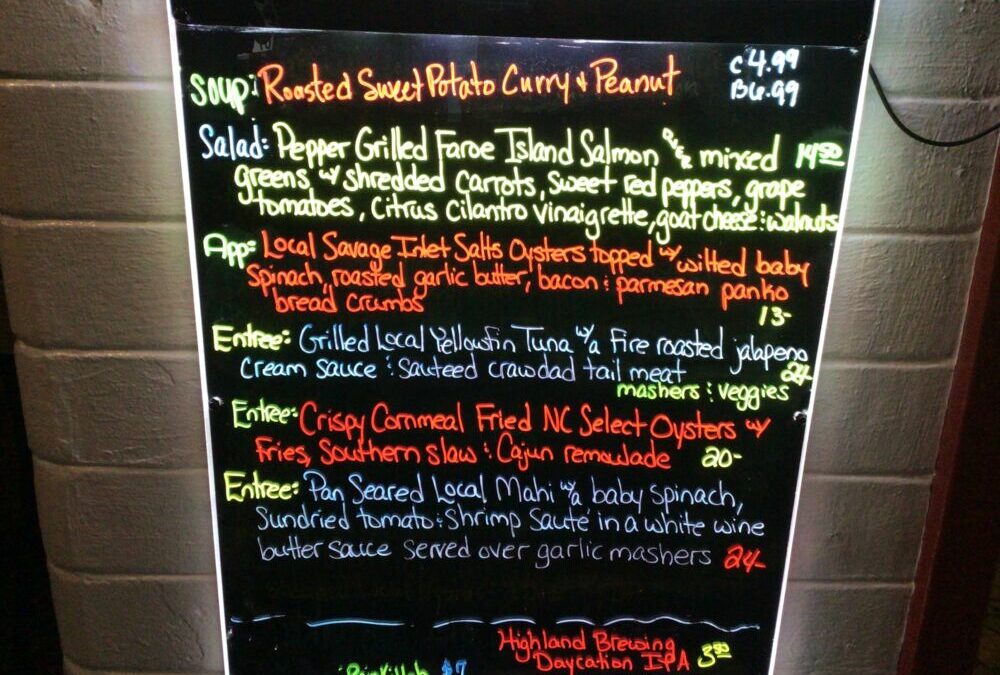 Soup: Roasted Sweet Potato Curry & Peanut C 4.99
B 6.99
Salad: Pepper Grilled Faroe Island Salmon over mixed 14.50
greens w/ shredded carrots, sweet red peppers, grape
tomatoes, citrus cilantro vinaigrette, goat cheese & walnuts
App: Local Savage Inlet Salts Oysters topped w/ wilted baby
spinach, roasted garlic butter, bacon & parmesan panko
bread crumbs 13-
Entree: Grilled Local Yellowfin Tuna w/a fire roasted jalapeno
cream sauce & sauteed crawdad tail meat 24-
mashers & veggies
Entree: Crispy Cornmeal Fried NC Select Oysters w/
Fries, Southern slaw & Cajun remoulade 20-
Entree: Pan Seared Local Mahi w/a baby spinach,
Sundried tomato & Shrimp Sauté in a white wine
butter sauce served over garlic mashers 24-
Highland Brewing
Daycation IPA 3.50
$7